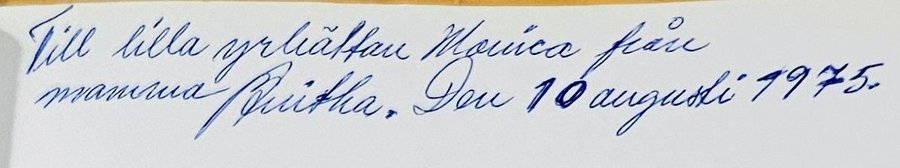 Till lilla yrhättan Monica från
mamma Anitha. Den 10 augusti 1975.